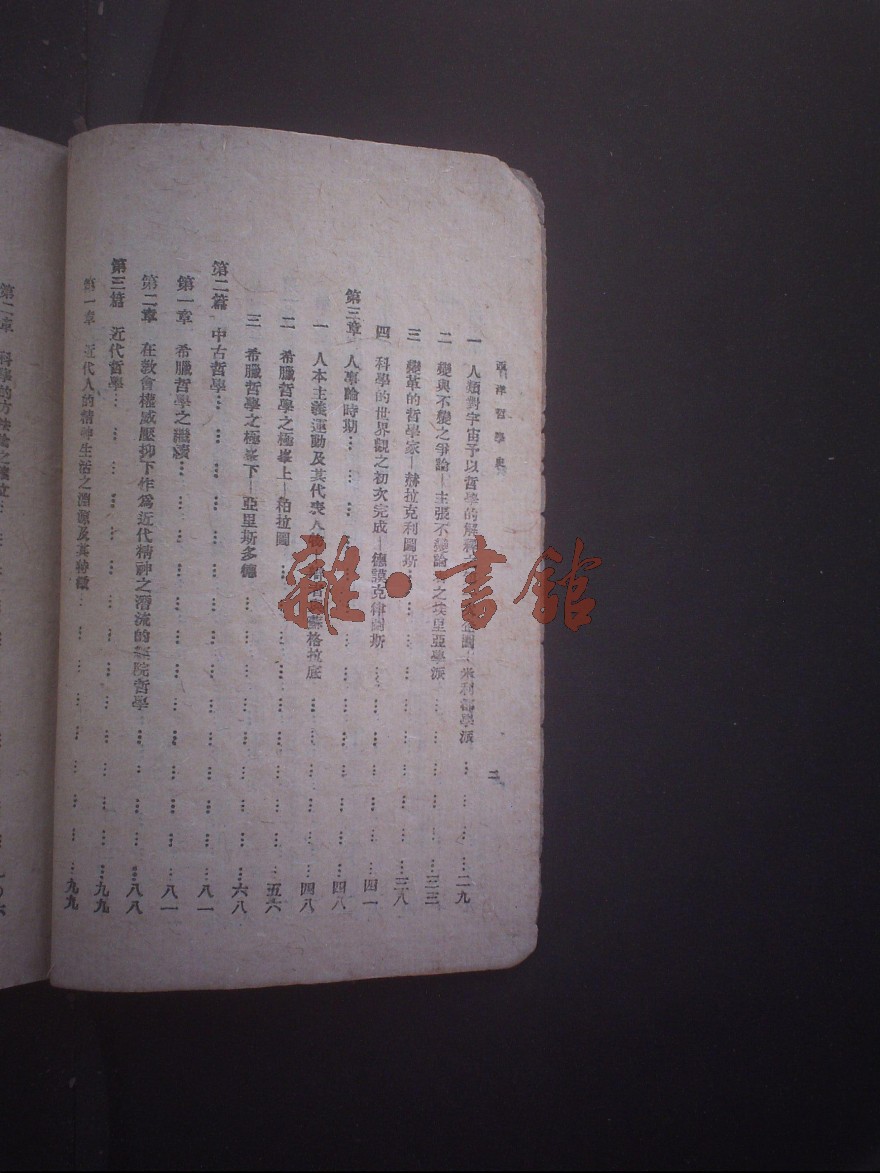 西洋哲學史
二
一 人類對宇宙予以哲學的解釋之 企圖—米利都學派…………二九
二 變與不變之爭論—主張不變論 之埃里亞學派…………三三
三 變革的哲學家—赫拉克利圖斯…………三八
四 科學的世界觀之初次完成—德謨克律圖斯…………四一
第三章 人事論時期…………四八
一 人本主義運動及其代表人 蘇格拉底…………四八
二 希臘哲學之極峯上—柏拉圖…………五六
三 希臘哲學之極峯下—亞里斯多德…………六八
第二篇 中古哲學…………八一
第一章 希臘哲學之繼續…………八一
第二章 在教會權威壓抑下作為近代精神之潛流的經院哲學…………八八
第三篇 近代哲學…………九九
第一章 近代人的精神生活之淵源及其特徵…………九九
第二章 科學的方法論之建立…………一〇六
雜·書館